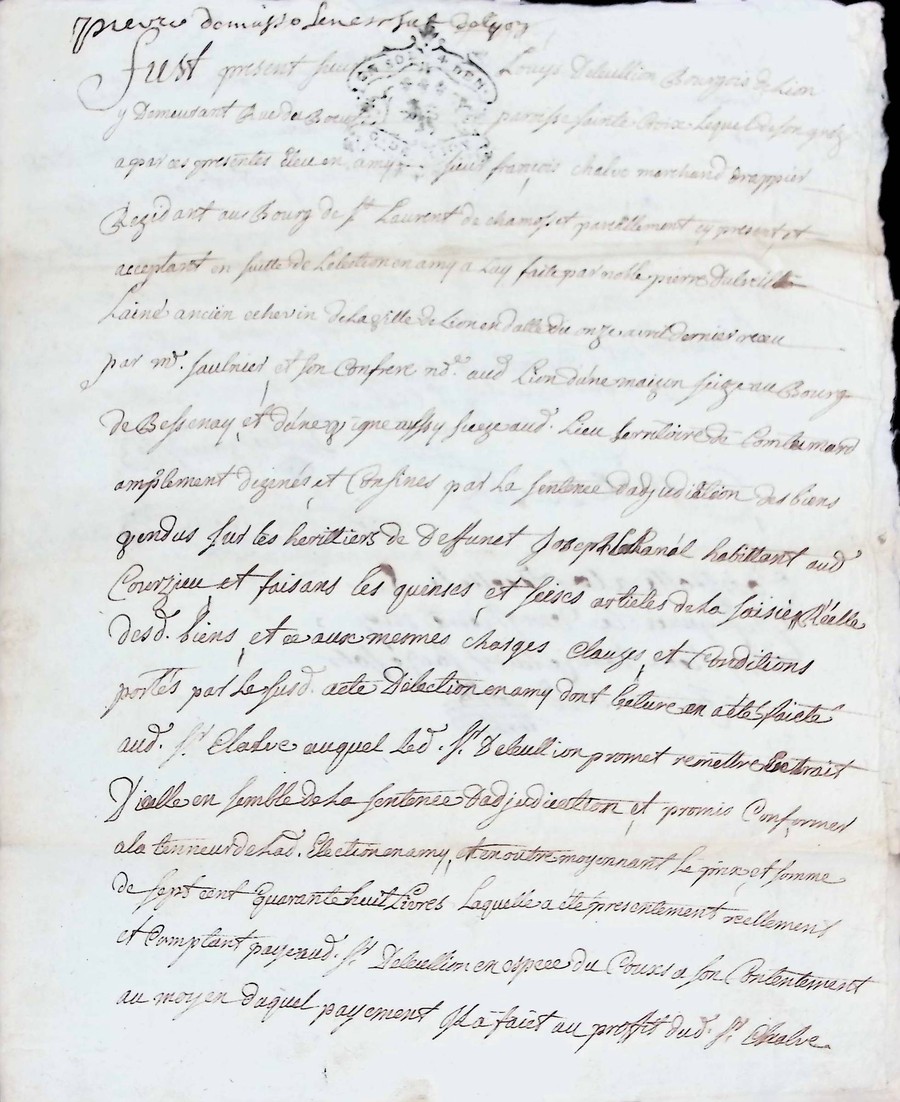 Fust present sieur Louys Deleullion Bourgois de Lion
y Demeurant Rue du Boeuf paroisse Sainte Croix Lequel de son gre
a par ces presentes Eleu en amy sieur françois chalve marchand drappier
Rezidant au Bourg de St. Laurent de chamos et pareillement cy present et
acceptant en suitte de Lelection en amy a Luy faite par noble pierre
Laine ancien echevin de La ville de Lion en datte du onze avril dernier receu
par me. saulnier et son Confrere nre. aud Lion d'une maison seize au Bourg
de Bessenay et d'une vigne aussy sceze aud. Lieu territoire de
amplement dezinés et Confines par La sentence dadjudication des biens
vendus sur les heritiers de deffunct Joseph habittant aud
Courzieu et faisans les quinses et seises articles de La saisie Réelle
desd. biens et ce aux mennes charges clauzes et Conditions
portés par Le susd. acte Délection en amy dont lecture en a eté faicte
aud. Sr. Chalve auquel Led. Sr. Deleullion promet remettre Extrait
D'icelle en semble de La sentence Dadjudication et promis Conformer
a la tenneur de Lad. Election en amy, et en outre moyennant Le prix et somme
de sept cent Quarante huit Livres Laquelle a été présentement reellement
et Comptant payé aud. Sr. Deleullion en espece du Cours a son Contentement
au moyen duquel payement Il a faict au proffit dud. Sr. Chalve